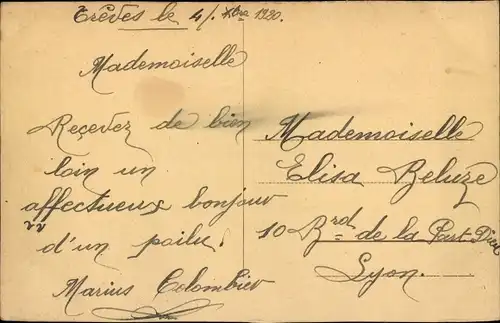 Trêves le 4/. Xbre 1920.
Mademoiselle
Reçevez de bien
loin un
affectueux bonjour
d'un poilu.
Marius Colombier
Mademoiselle
Elisa Beluze
10 Brd de la Part Dieu
Lyon.